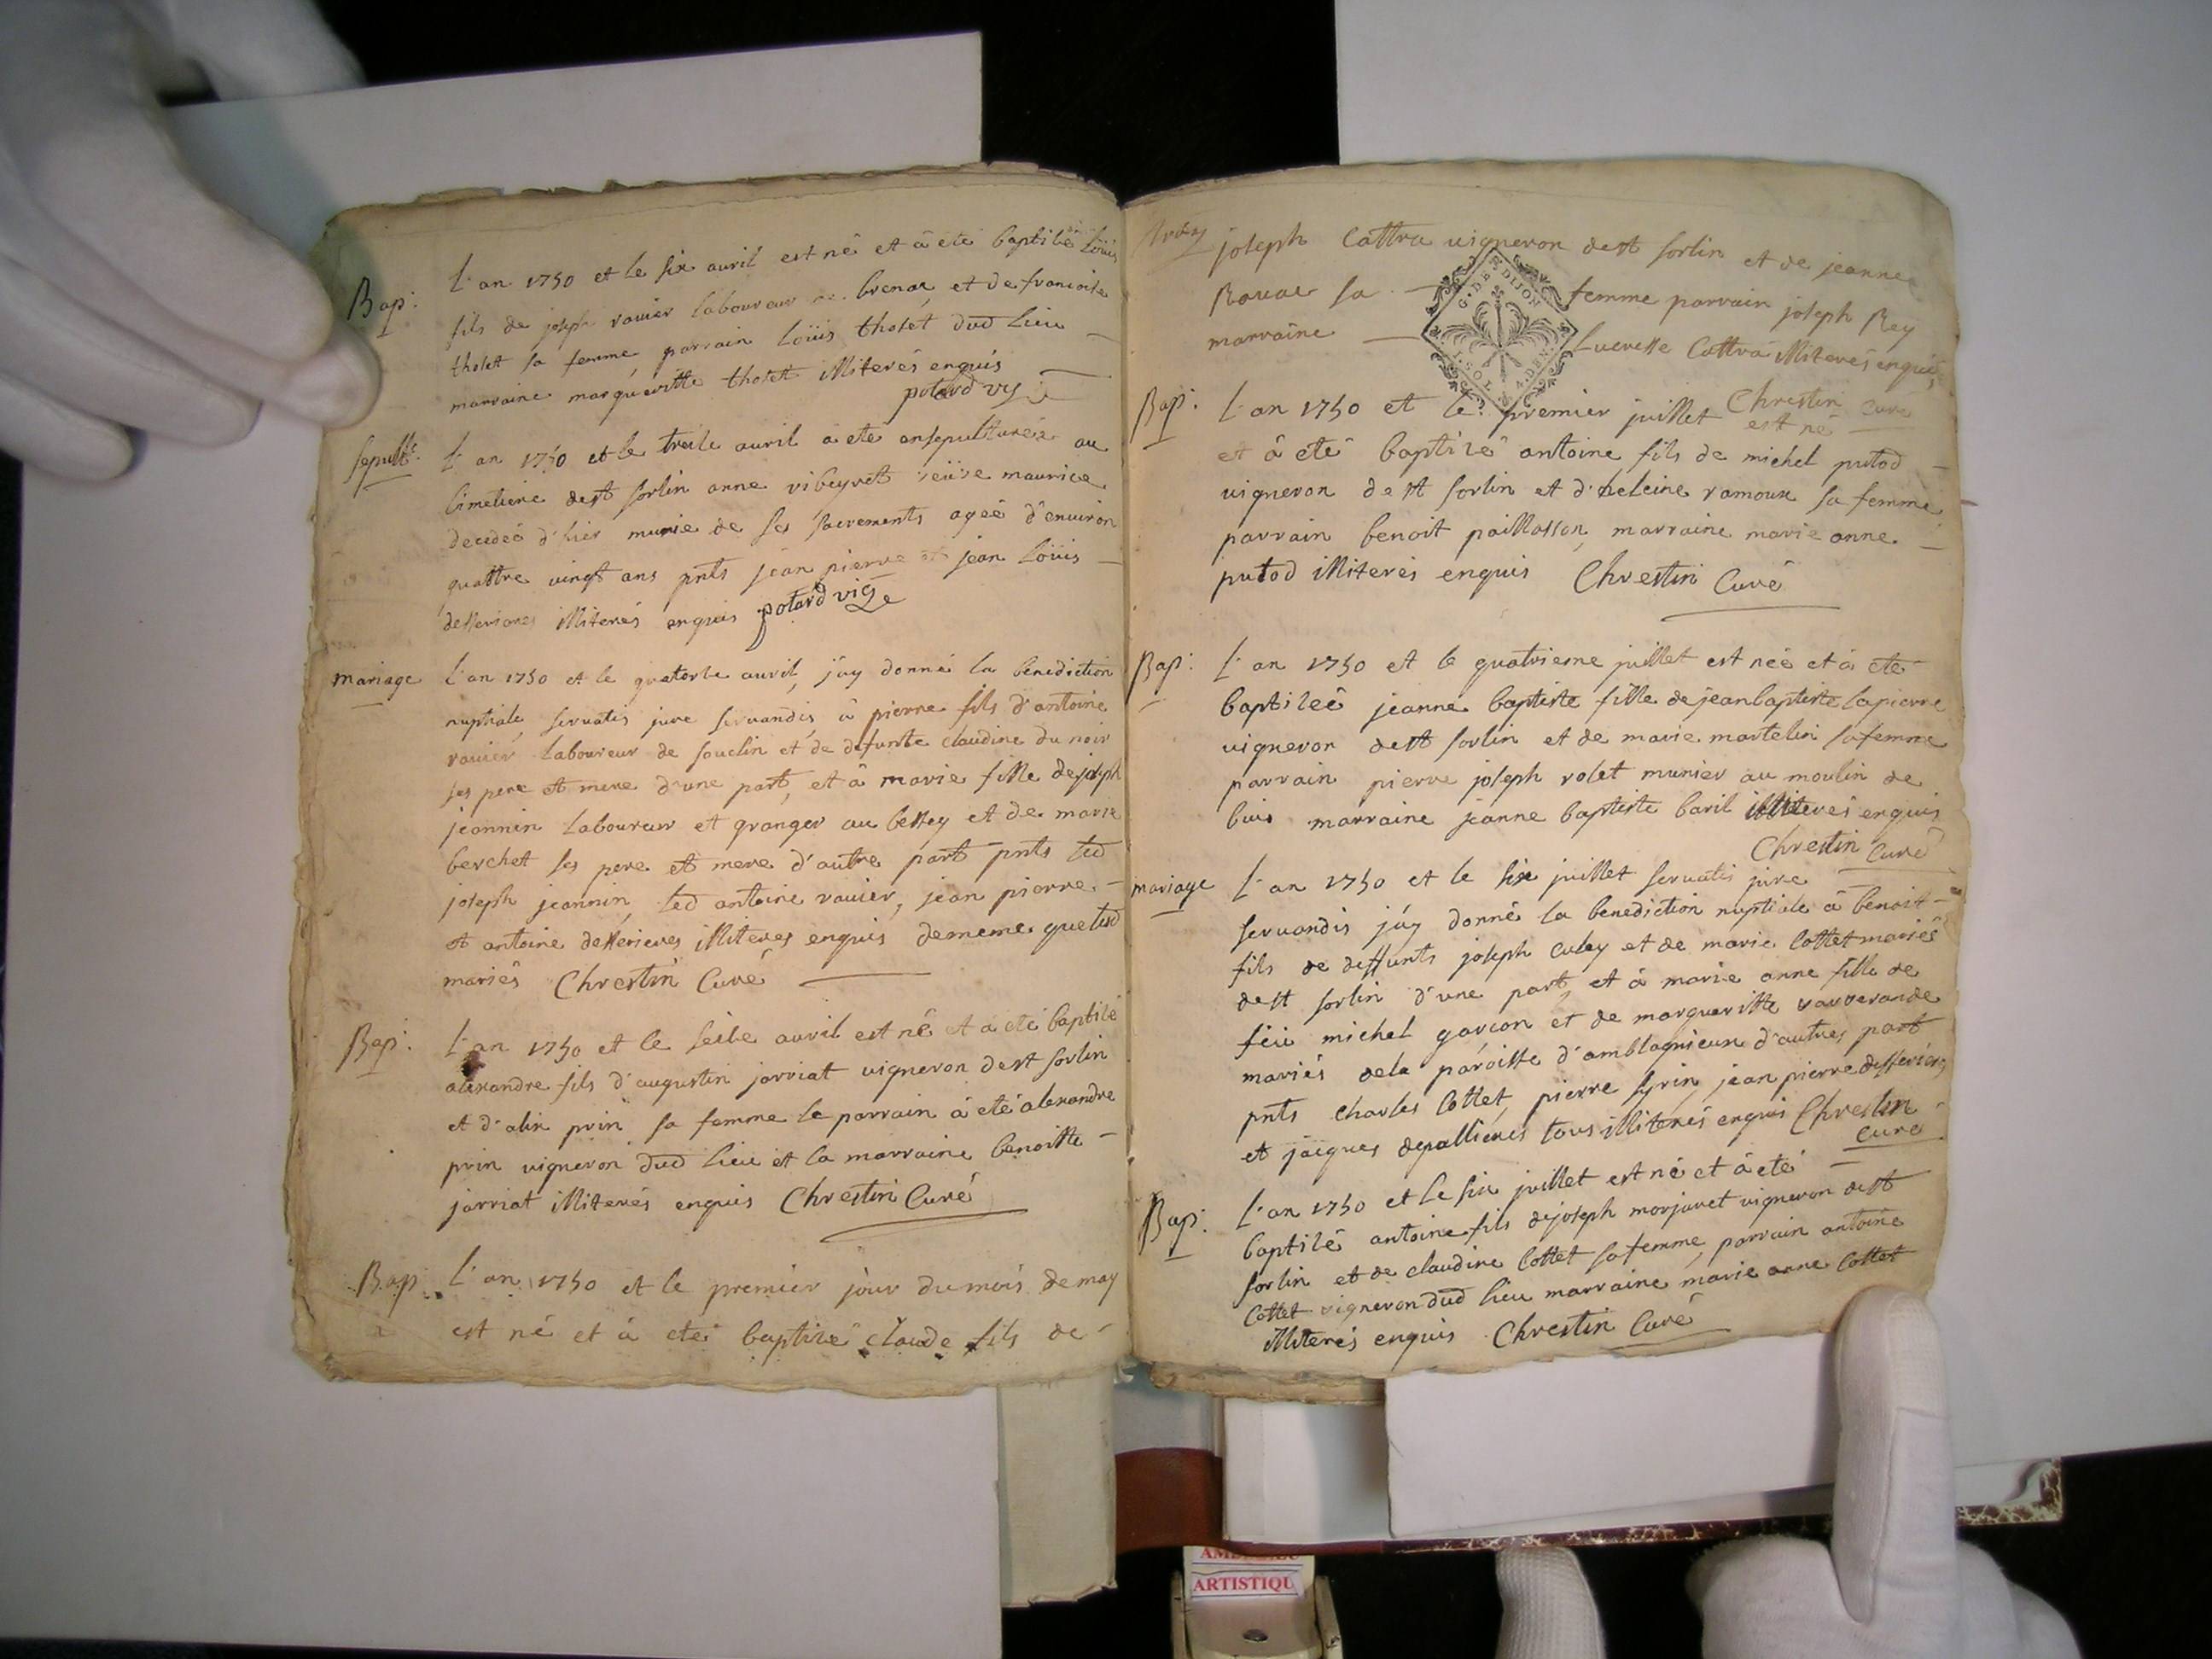 Bap: L'an 1750 et le six avril est né et à été baptisé Loüis
fils de joseph ravier laboureur de brenaz et de francoise
tholet sa femme, parrain Loüis tholet dud lieu
marraine margueritte tholet illiterés enquis
potard vic
Sepult: L'an 1750 et le treise avril à été ensepulturée au
Cimetiere de st Sorlin anne vibeyret veüve maurice
decedeé d'hier munie de ses sacrements ageé d'environ
quattre vingt ans pnts jean pierre et jean Loüis
desserieres illiterés enquis potard vice
Mariage L'an 1750 et le quatorse avril, j'ay donné la benediction
nuptiale, servatis jure servandis, à pierre fils d'antoine
ravier laboureur de souclin et de defunte claudine du noir
ses pere et mere d'une part, et à marie fille de joseph
jeannin laboureur et granger au bessey et de marie
berchet ses pere et mere d'autre part pnts led
joseph jeannin, led antoine ravier, jean pierre
et antoine desserieres illiterés enquis de meme que lesd
mariés Chrestin Curé
Bap: L'an 1750 et le seise avril est né et à été baptisé
alexandre fils d'augustin jarriat vigneron de st sorlin
et d'alix prin sa femme le parrain à été alexandre
prin vigneron dud lieu et la marraine benoitte
jarriat illiterés enquis Chrestin Curé
Bap L'an 1750 et le premier jour du mois de may
est né et à été baptisé claude fils de
joseph Cattra vigneron de st sorlin et de jeanne
Ravat sa femme parrain joseph Rey
marraine Lucresse Cattra illiterés enquis
G. DE DIJON
I. SOL. 4. DEN.
Chrestin Curé
Bap: L'an 1750 et le premier juillet est né
et à été baptisé antoine fils de michel putod
vigneron de st sorlin et d'heleine ramoux sa femme
parrain benoit paillasson, marraine marie anne
putod illiterés enquis Chrestin Curé
Bap: L'an 1750 et le quatrieme juillet est née et à été
baptiseé jeanne baptiste fille de jean baptiste lapierre
vigneron de st sorlin et de marie martelin sa femme
parrain pierre joseph rolet munier au moulin de
buis marraine jeanne baptiste baril illiterés enquis
Chrestin Curé
mariage L'an 1750 et le six juillet servatis jure
servandis j'ay donné la benediction nuptiale à benoit
fils de deffunts joseph culey et de marie Cottet mariés
de st sorlin d'une part, et à marie anne fille de
feü michel garcon et de margueritte varverande
mariés de la paroisse d'amblagnieux d'autres part
pnts charles Cottet, pierre syrin, jean pierre desserieres
et jacques depallieres tous illiterés enquis Chrestin
Curé
Bap: L'an 1750 et le six juillet est né et à été
baptisé antoine fils de joseph morjaret vigneron de st
sorlin et de claudine Cottet sa femme, parrain antoine
Cottet vigneron dud lieu marraine marie anne Cottet
illiterés enquis Chrestin Curé
ARTISTIQU